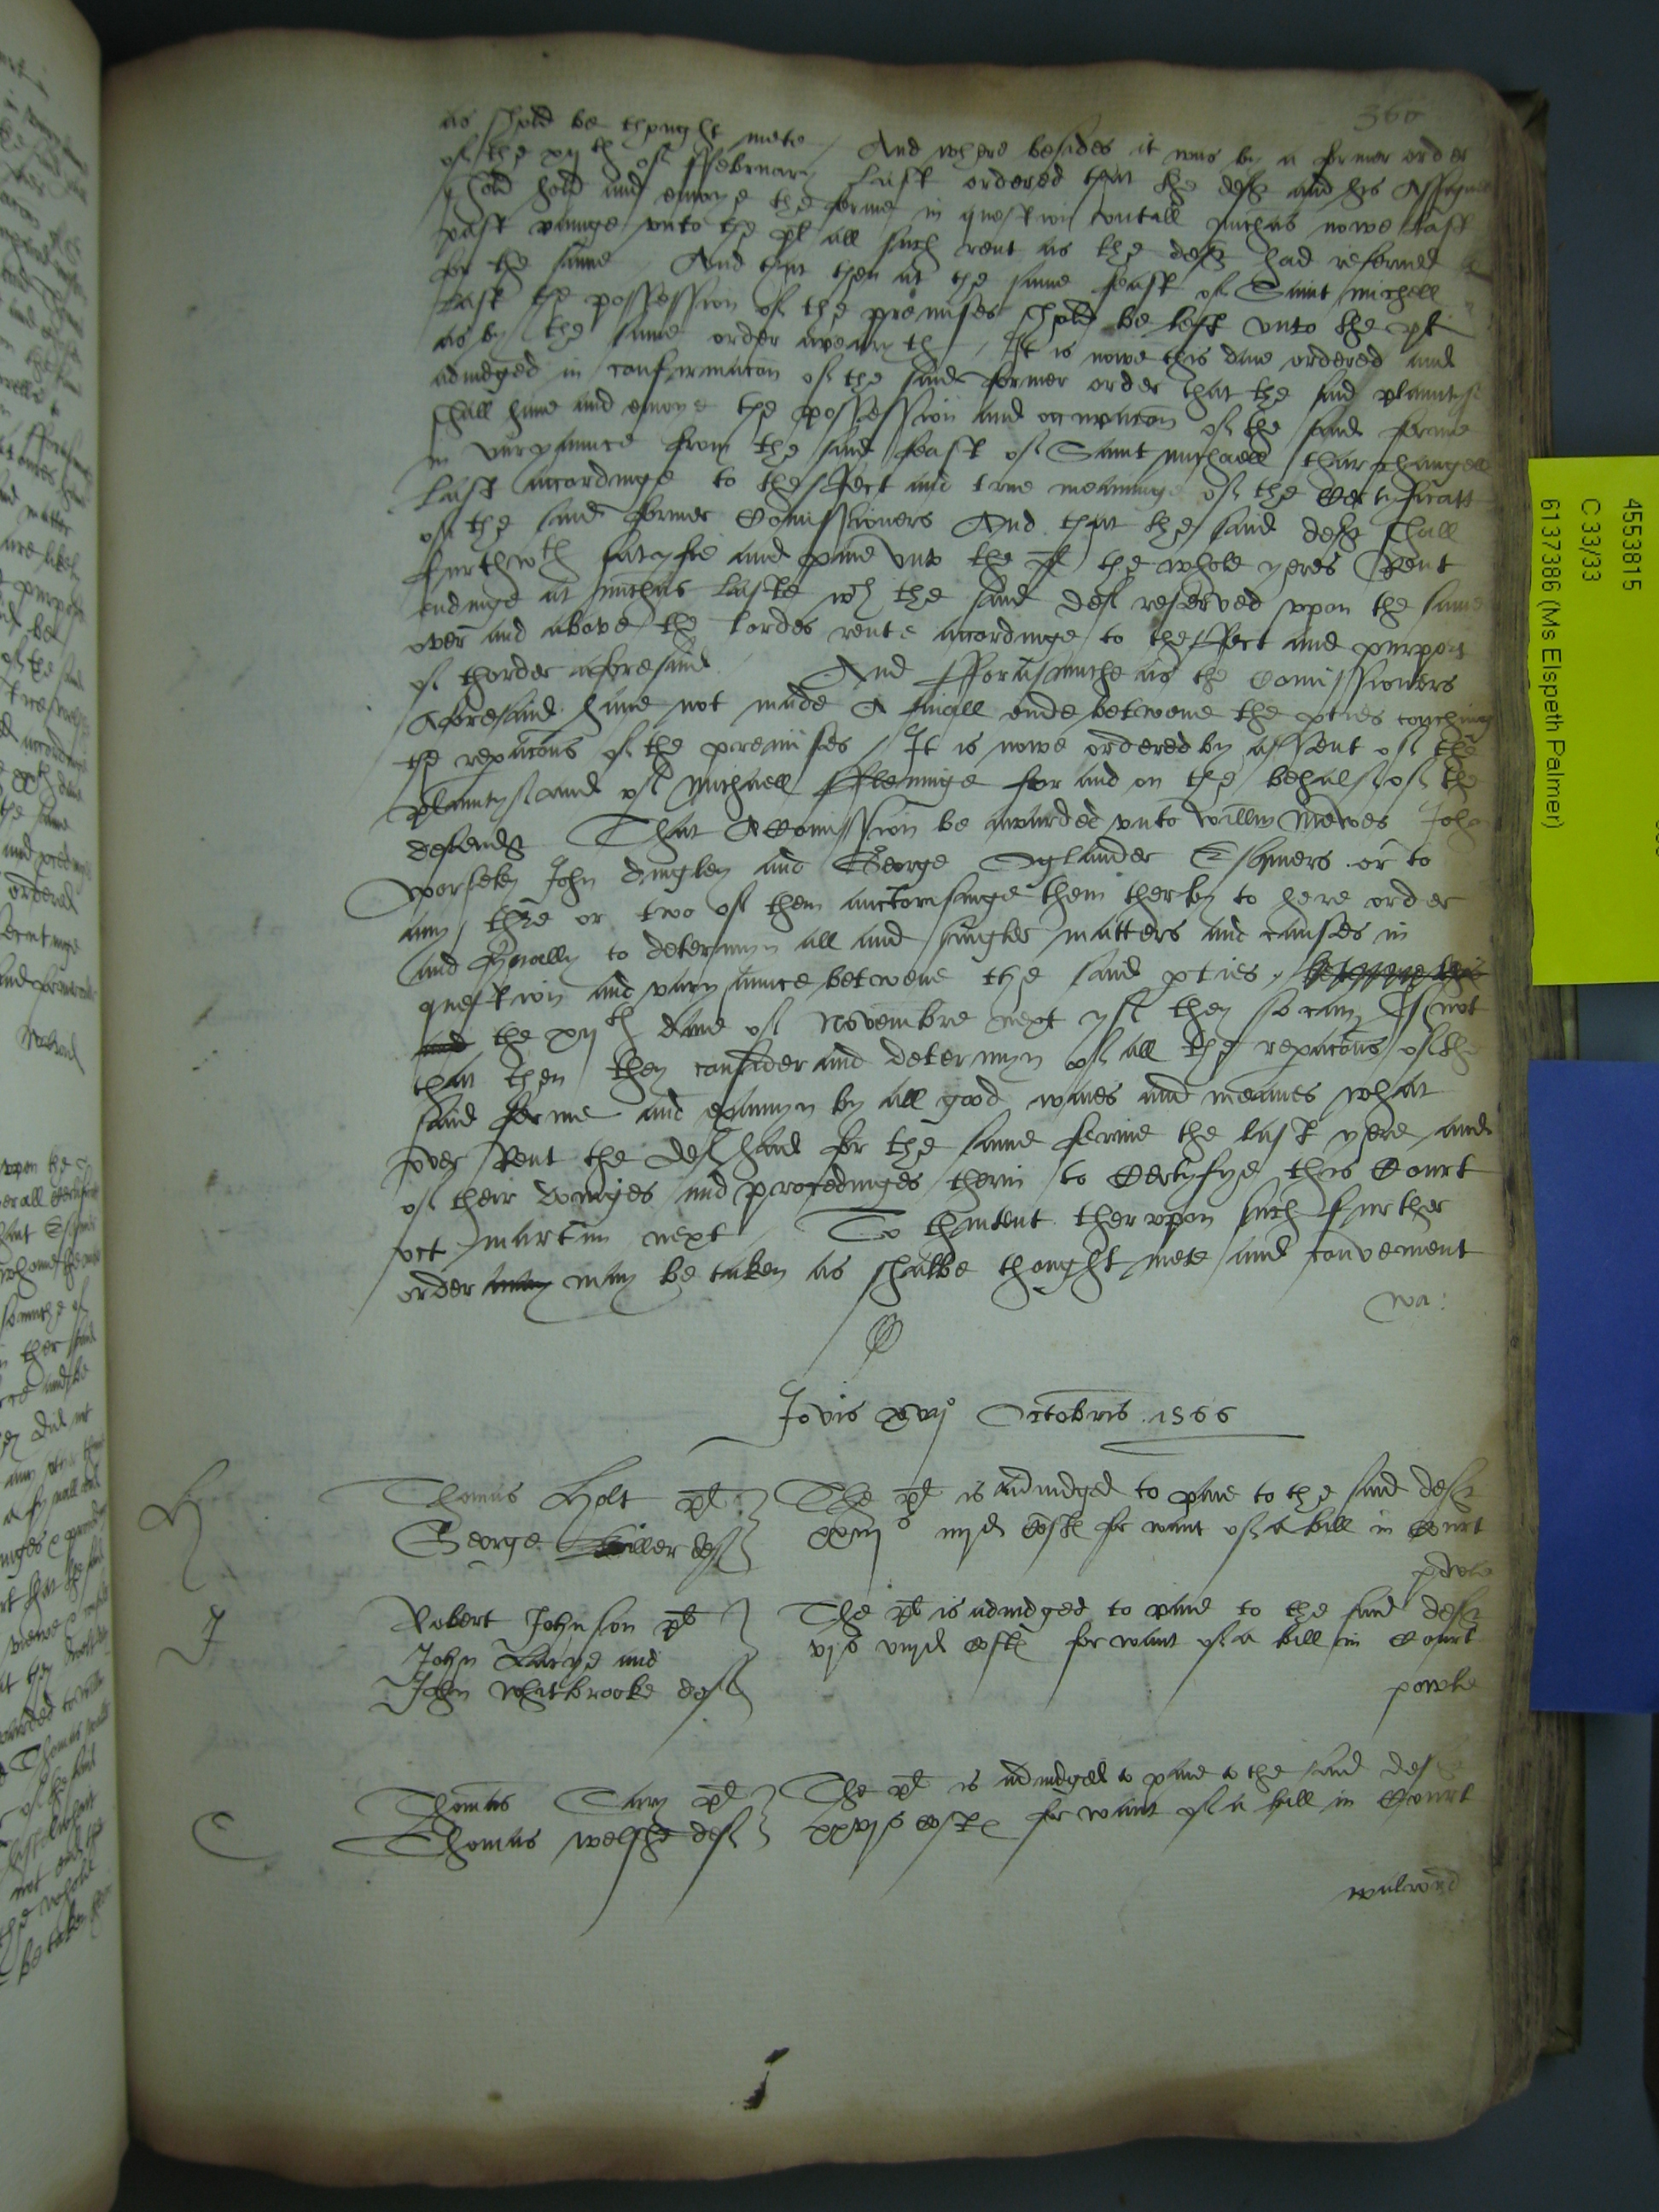 366
as shold be thought mete / And where besides it was by a former order
of the xijth of ffebruary last ordered that the deft and his Assigne
shold hold and enioye the ferme in question vntill michas nowe last
past payinge vnto the pl all such rent as the deft had reserved
for the same And that then at the same feast of Saint michell
last the possession of the premises shold be left vnto the pl
as by the same order apearyth / It is nowe this daie ordered and
adiudged in confirmacon of the said former order that the said plaintyf
shall haue and enioye the possession and occupacon of the said ferme
in varyaunce from the said feast of Saint michaell tharchangell
last accordinge to theffect and true meaninge of the Certyficatt
of the said former Comissioners And that the said deft shall
furthwth satysfie and paie vnto the pl the whole yeres Rent
endinge at michas laste wch the said def reserved vpon the same
over and above the lordes rente accordinge to theffect and purport
of thorder aforesaid And fforasmuche as the comissioners
Aforesaid haue not made A finall ende betwene the pties touching
the repacons of the premisses / It is nowe ordered by assent of the
plaintyf and of Michaell ffleminge for and on the behalf of the
defendt That A Comission be awarded vnto willm Mewes John
worseley John dingley and George Oglander Esquiers or to
any thre or two of them auctorisinge them therby to here order
and fynally to determyn all and singler matters and causes in
question and varyaunce betwene the said pties /
and the xijth daie of Novembre next yf they so can, If not
that then they consider and determyn of all the repacons of the
said ferme and examyn by all good waies and meanes what
over Rent the def had for the same ferme the last yere and
of their doinges and procedinges therin to Certyfye this Court
oct martini next To thintent thervpon such further
order may may be taken as shalbe thought mete and convenient
wa:
Jovis xvijo Octobris 1566
H
Thomas Holt pl
George Miller def
The pl is adiudged to paie to the said deft
xxiijs iiijd costes for want of a bill in Court
J
Robert Johnson pl
John Larye and
John whitbrooke def
The pl is adiudged to paie to the said deft
vjs viijd costes for want of a bill in Court
powle
C
Thomas Cary pl
Thomas welshe def
The pl is adiudged to paie to the said def
xxvjs costes for want of a bill in Court
walrond
4553815
C 33/33
6137386 (Ms Elspeth Palmer)